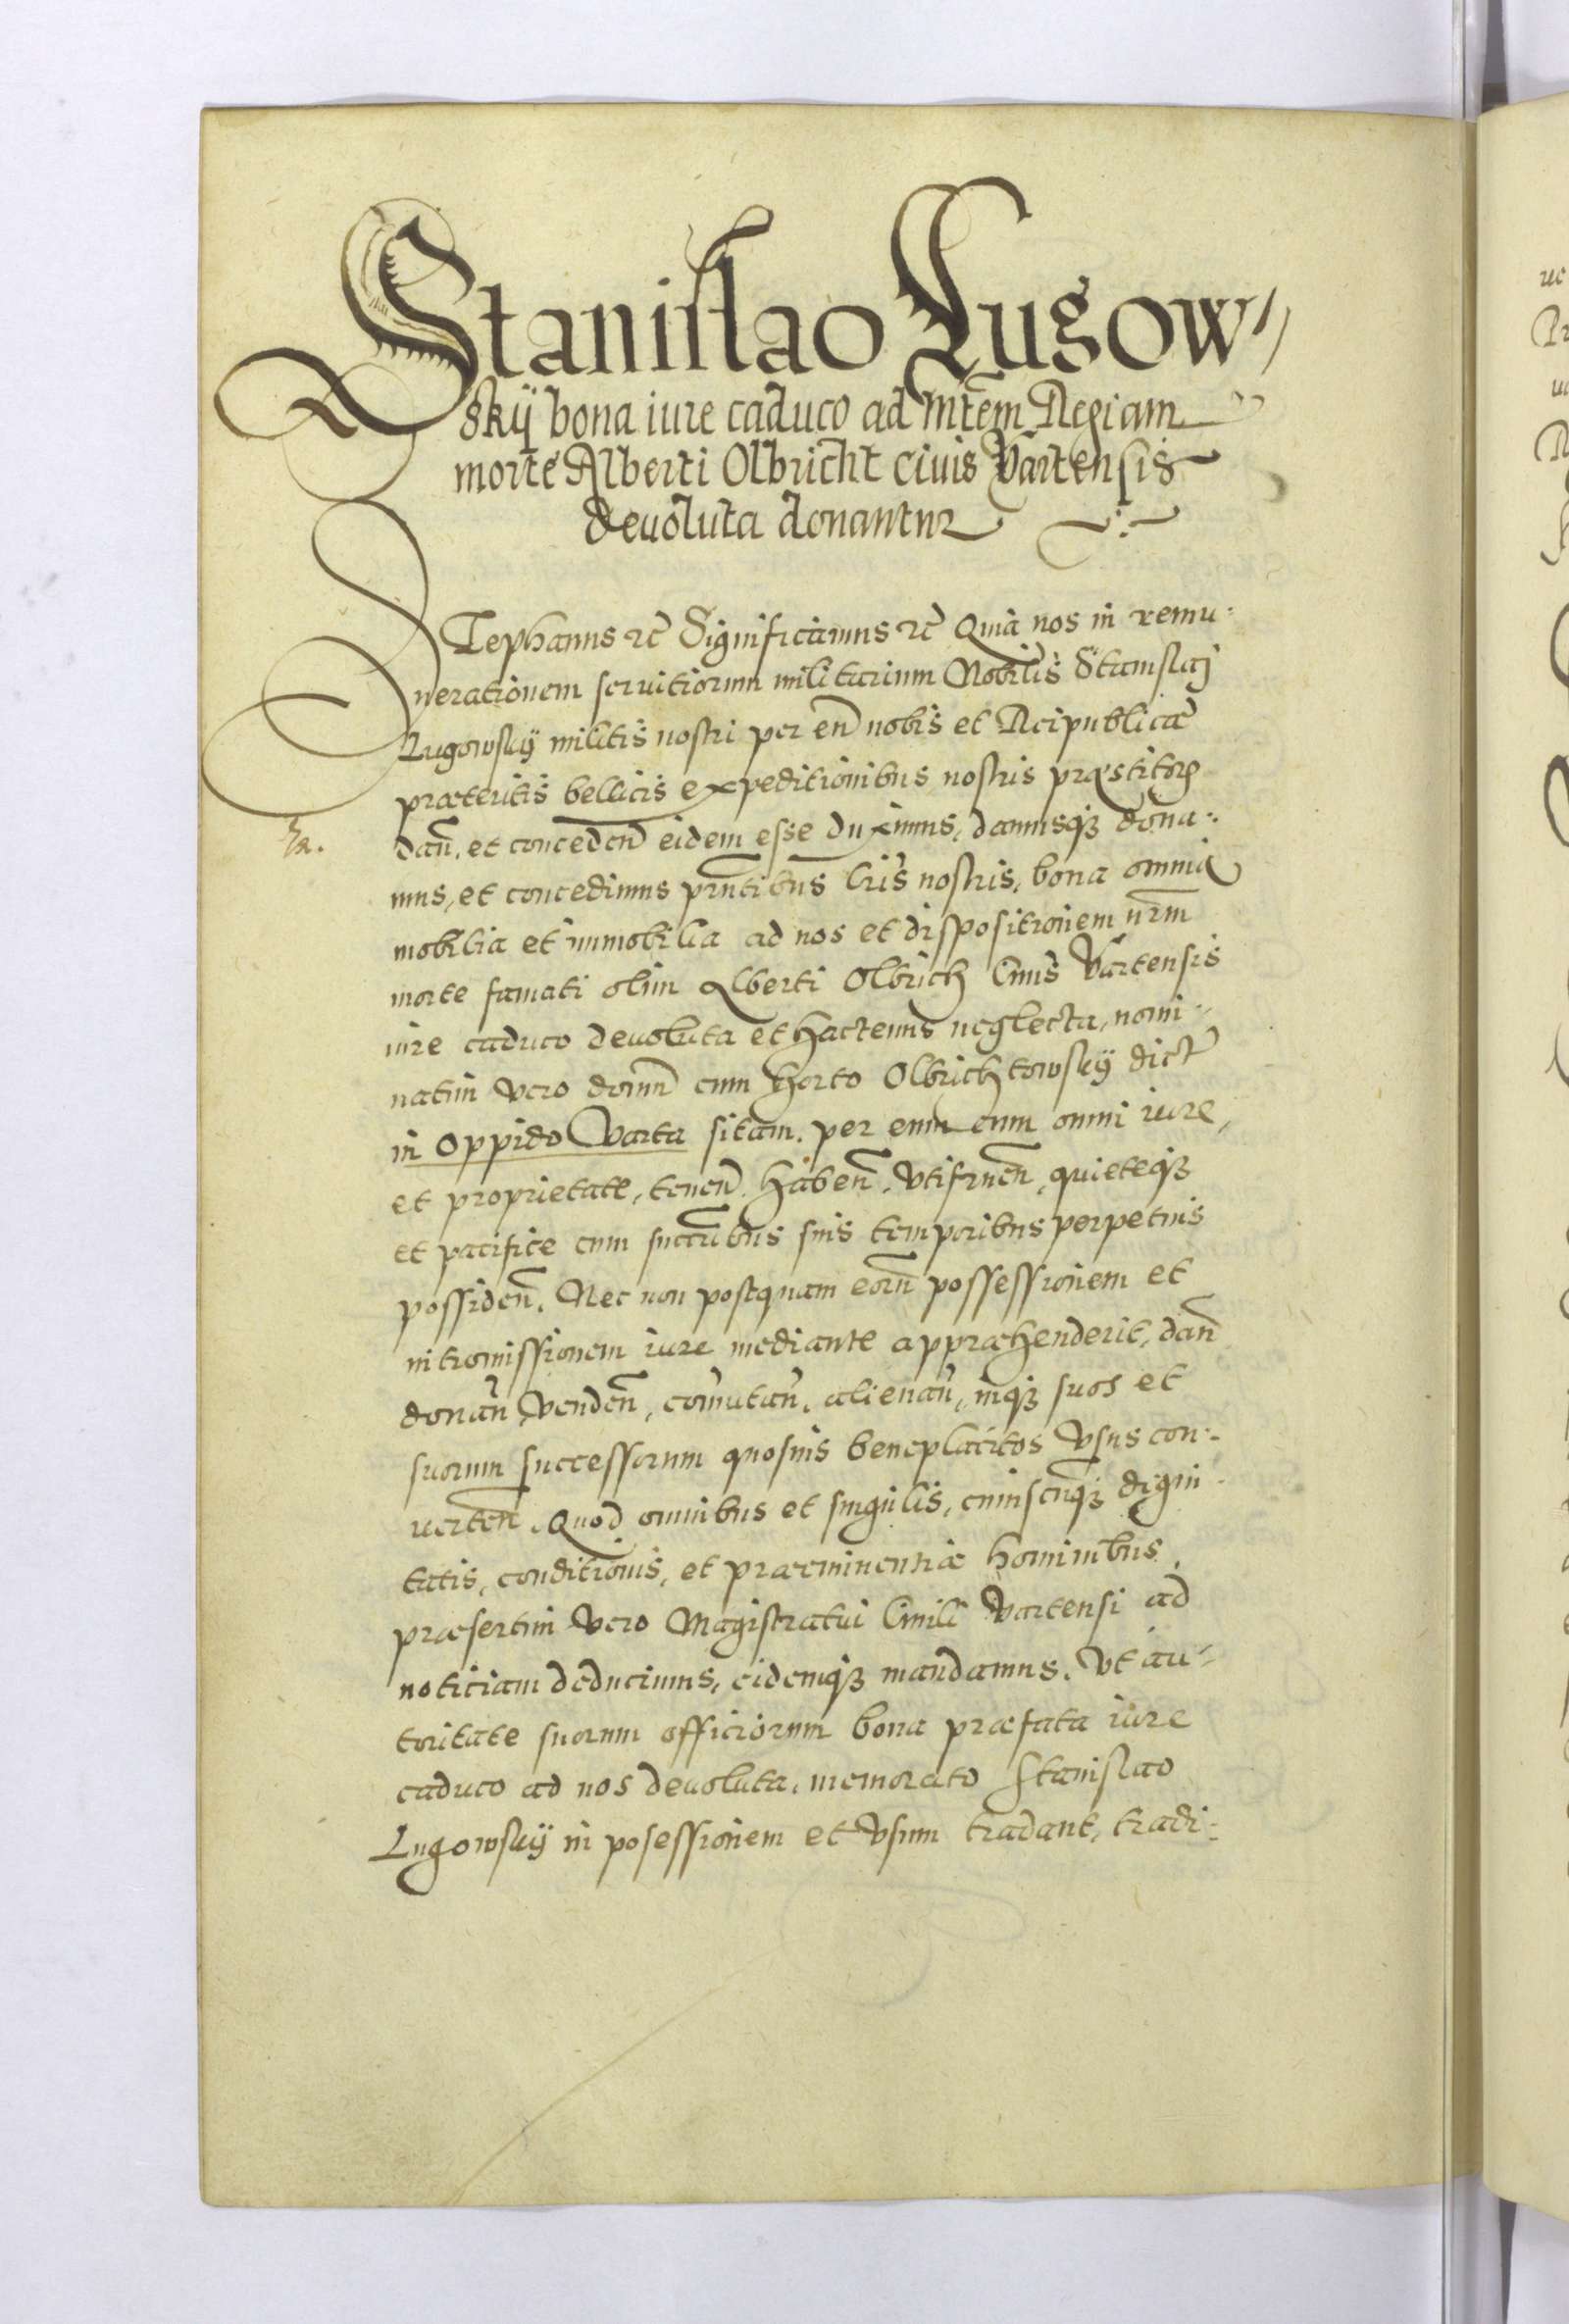 Stanislao Lugow„
skÿ bona iure caduco ad Mtem Regiam
morte Alberti Olbricht ciuis Vartensis
deuoluta donantur
Stephanus etc Significamus etc Quia nos in remu:
nerationem seruitiorum militarium Nobilis Stanislaj
Lugowskÿ militis nostri per eñ nobis et Reipublicæ
præteritis bellicis expeditionibus nostris præstitorꝫ
dañ. et conceden̄ eidem esse duximus, damusqꝫ dona:
mus, et concedimus prñtibus lris nostris, bona omnia
mobilia et immobilia ad nos et dispositionem nrm
morte famati olim Alberti Olbrich Ciuis Vartensis
iure caduco deuoluta et hactenus neglecta, nomi„
natim vero domũ cum horto Olbrichtowskÿ dict
in oppido Varta sitam. per eum cum omni iure,
et proprietate, teneñ. habeñ, vtifrueñ, quieteqꝫ
et pacifice cum succribus suis temporibus perpetuis
possideñ. Nec non postquam eorũ possessionem et
intromissionem iure mediante appræhenderit, dañ
donañ, vendeñ, com̃utañ, alienañ, inqꝫ suos et
suorum successorum quosuis beneplacitos vsus con:
uerteñ. Quod omnibus et singulis, cuiuscunqꝫ digni„
tatis, conditionis, et præeminentiæ hominibus,
præsertim vero Magistratui Ciuili Vartensi ad
noticiam deducimus, eidemqꝫ mandamus. Vt au„
toritate suorum officiorum bona præfata iure
caduco ad nos deuoluta, memorato Stanislao
Lugowskÿ in posessionem et vsum tradant, tradi: